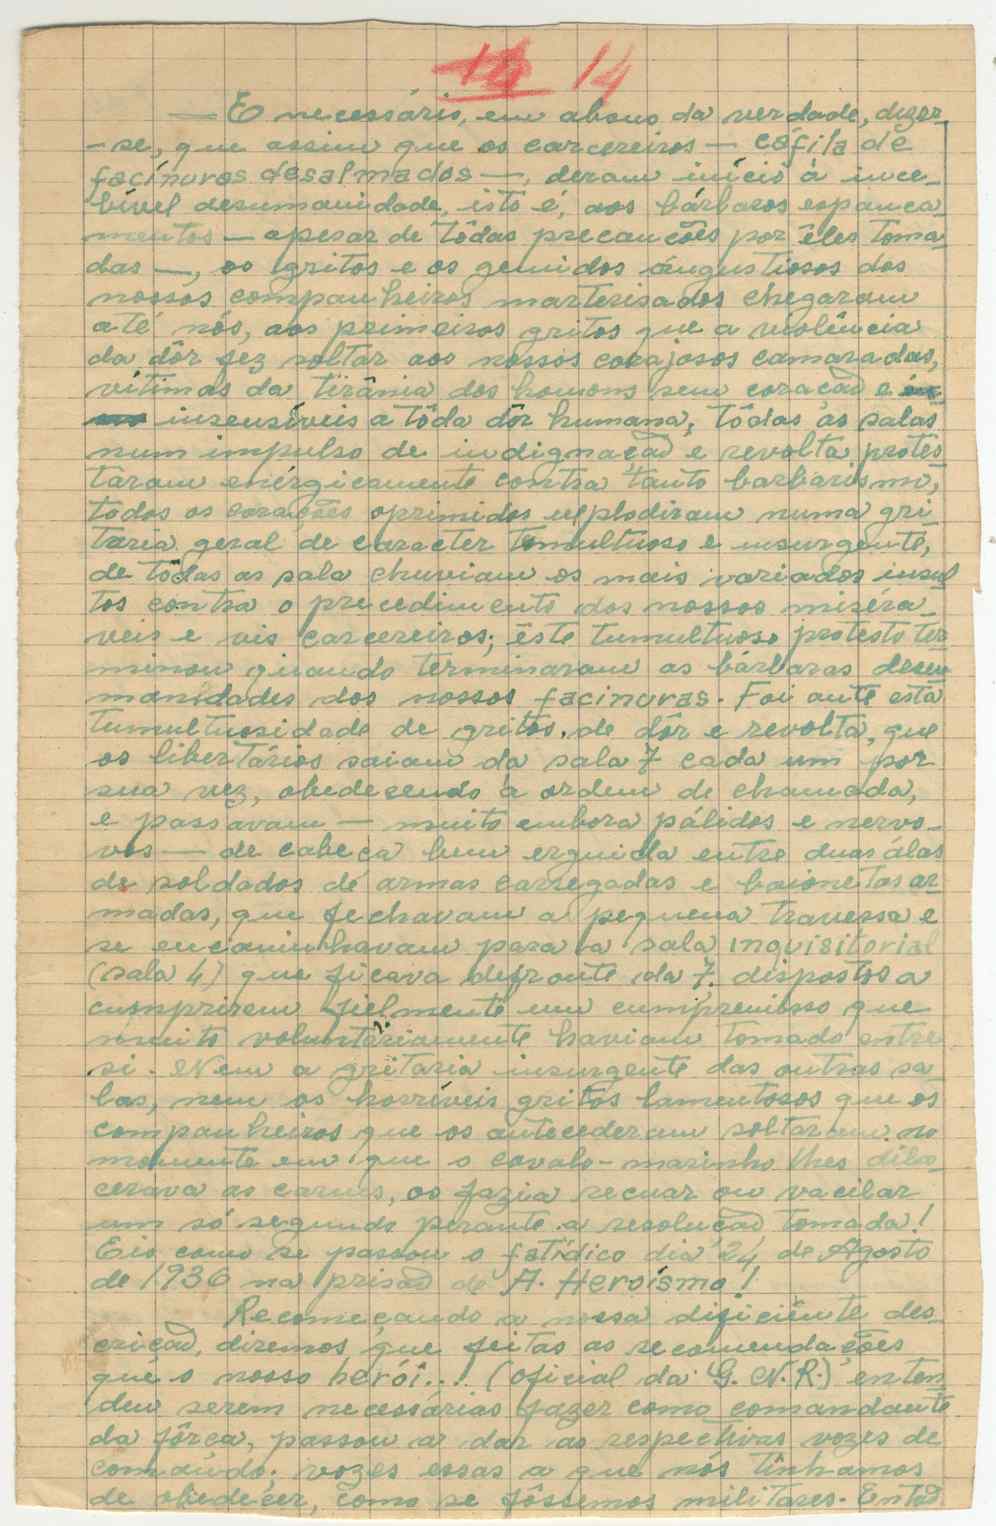 16 14
— É necessário, em abono da verdade, dizer-
-se, que assim que os carcereiros — cáfila de
facínoras desalmados —, deram início à ince-
bível desumanidade, isto é, aos bárbaros espanca-
mentos — apesar de tôdas precauções por êles toma-
das —, os gritos e os gemidos angustiosos dos
nossos companheiros marterisados chegaram
até nós, aos primeiros gritos que a violência
da dôr fez soltar aos nossos corajosos camaradas,
vítimas da tirânia dos homens sem coração e
insensíveis a tôda dôr humana, tôdas as salas
num impulso de indignação e revolta protes
taram enérgicamente contra tanto barbarismo,
todos os corações oprimidos explodiram numa gri
taria geral de caracter tomultuoso e insurgente,
de tôdas as sala chuviam os mais variados insul
tos contra o precedimento dos nossos miséra-
veis e vis carcereiros; êste tumultuoso protesto ter
minou quando terminaram as bárbaras desu
manidades dos nossos facinoras. Foi ante esta
tumultuosidade de gritos, de dôr e revolta, que
os libertários saiam da sala 7 cada um por
sua vez, obedecendo à ordem de chamada,
e passavam — muito embora pálidos e nervo-
vos — de cabeça bem erguida entre duas álas
de soldados de armas carregadas e baionetas ar
madas, que fechavam a pequena travessa e
se encaminhavam para a sala inquisitorial
(sala 4) que ficava defronte da 7, dispostos a
cumprirem fielmente um cumpremisso que
muito voluntáriamente haviam tomado entre
si. Nem a gritaria insurgente das outras sa
las, nem os horríveis gritos lamentosos que os
companheiros que os antecederam soltaram no
momente em que o cavalo-marinho lhes dila-
cerava as carnes, os fazia recuar ou vacilar
um só segundo perante a resolução tomada!
Eis como se passou o fatídico dia 24 de Agosto
de 1936 na prisão de A. Heroísmo!
Recomeçando a nossa dificiênte des
crição, diremos que feitas as recomendações
que o nosso herói...! (oficial da G.N.R.) enten
deu serem necessárias fazer como comandante
da fôrça, passou a dar as respectivas vozes de
comando; vozes essas a que nós tinhamos
de obedecer, como se fôssemos militares. Então